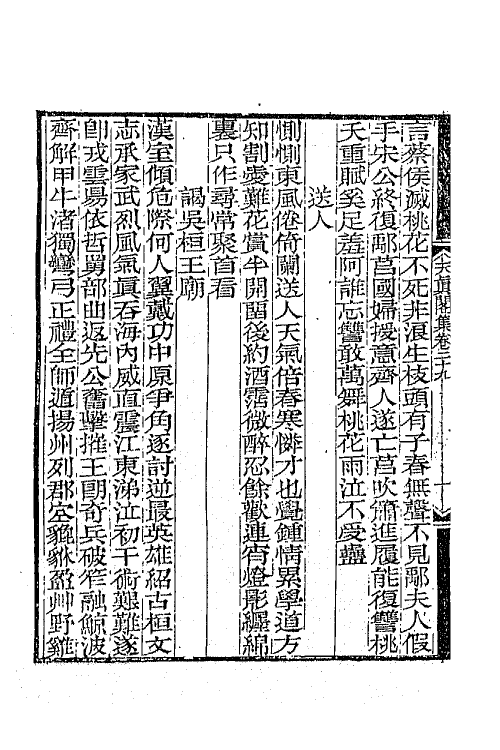 天眞閣集卷二十九
言蔡侯滅桃花不死非浪生枝頭有子春無聲不見鄢夫人假
手宋公終復鄢莒國婦援意齊人遂亡莒吹簫進履能復讐桃
夭重賦奚足羞阿誰忘讐敢萬舞桃花雨泣不受蠱
送人
惻惻東風倦倚闌送人天氣倍春寒憐才也覺鍾情累學道方
知割愛難花賞半開留後約酒霑微醉忍餘歡連宵燈影纒綿
裏只作尋常聚首看
謁吳桓王廟
漢室傾危際何人翼戴功中原爭角逐討逆最英雄紹古桓文
志承家武烈風氣眞吞海内威直震江東涕泣初干術艱難遂
卽戎雲暘依哲舅部曲返先公奮擊摧王朗奇兵破笮融鯨波
齊解甲牛渚獨彎弓正禮全師遁揚州列郡空貔貅盈艸野雞